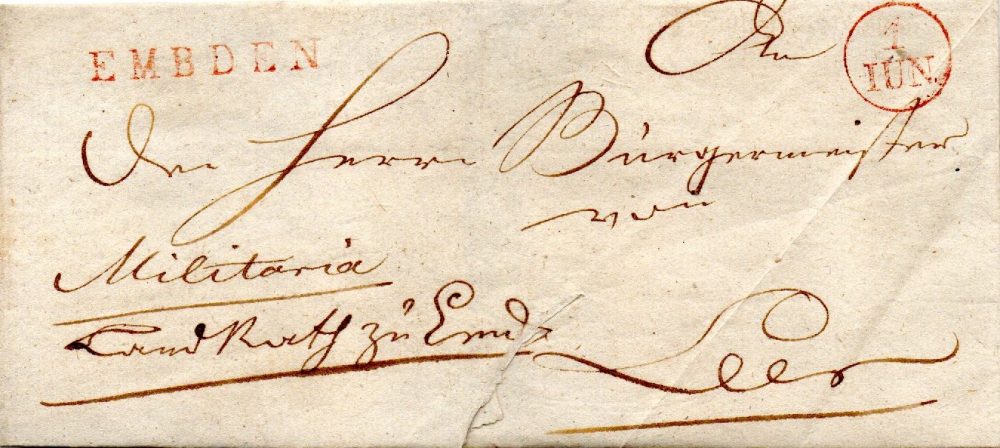 EMBDEN
1
IUN.
An
den Herrn Bürgermeister
von
Militaria
LandRath zu Emd
Leer